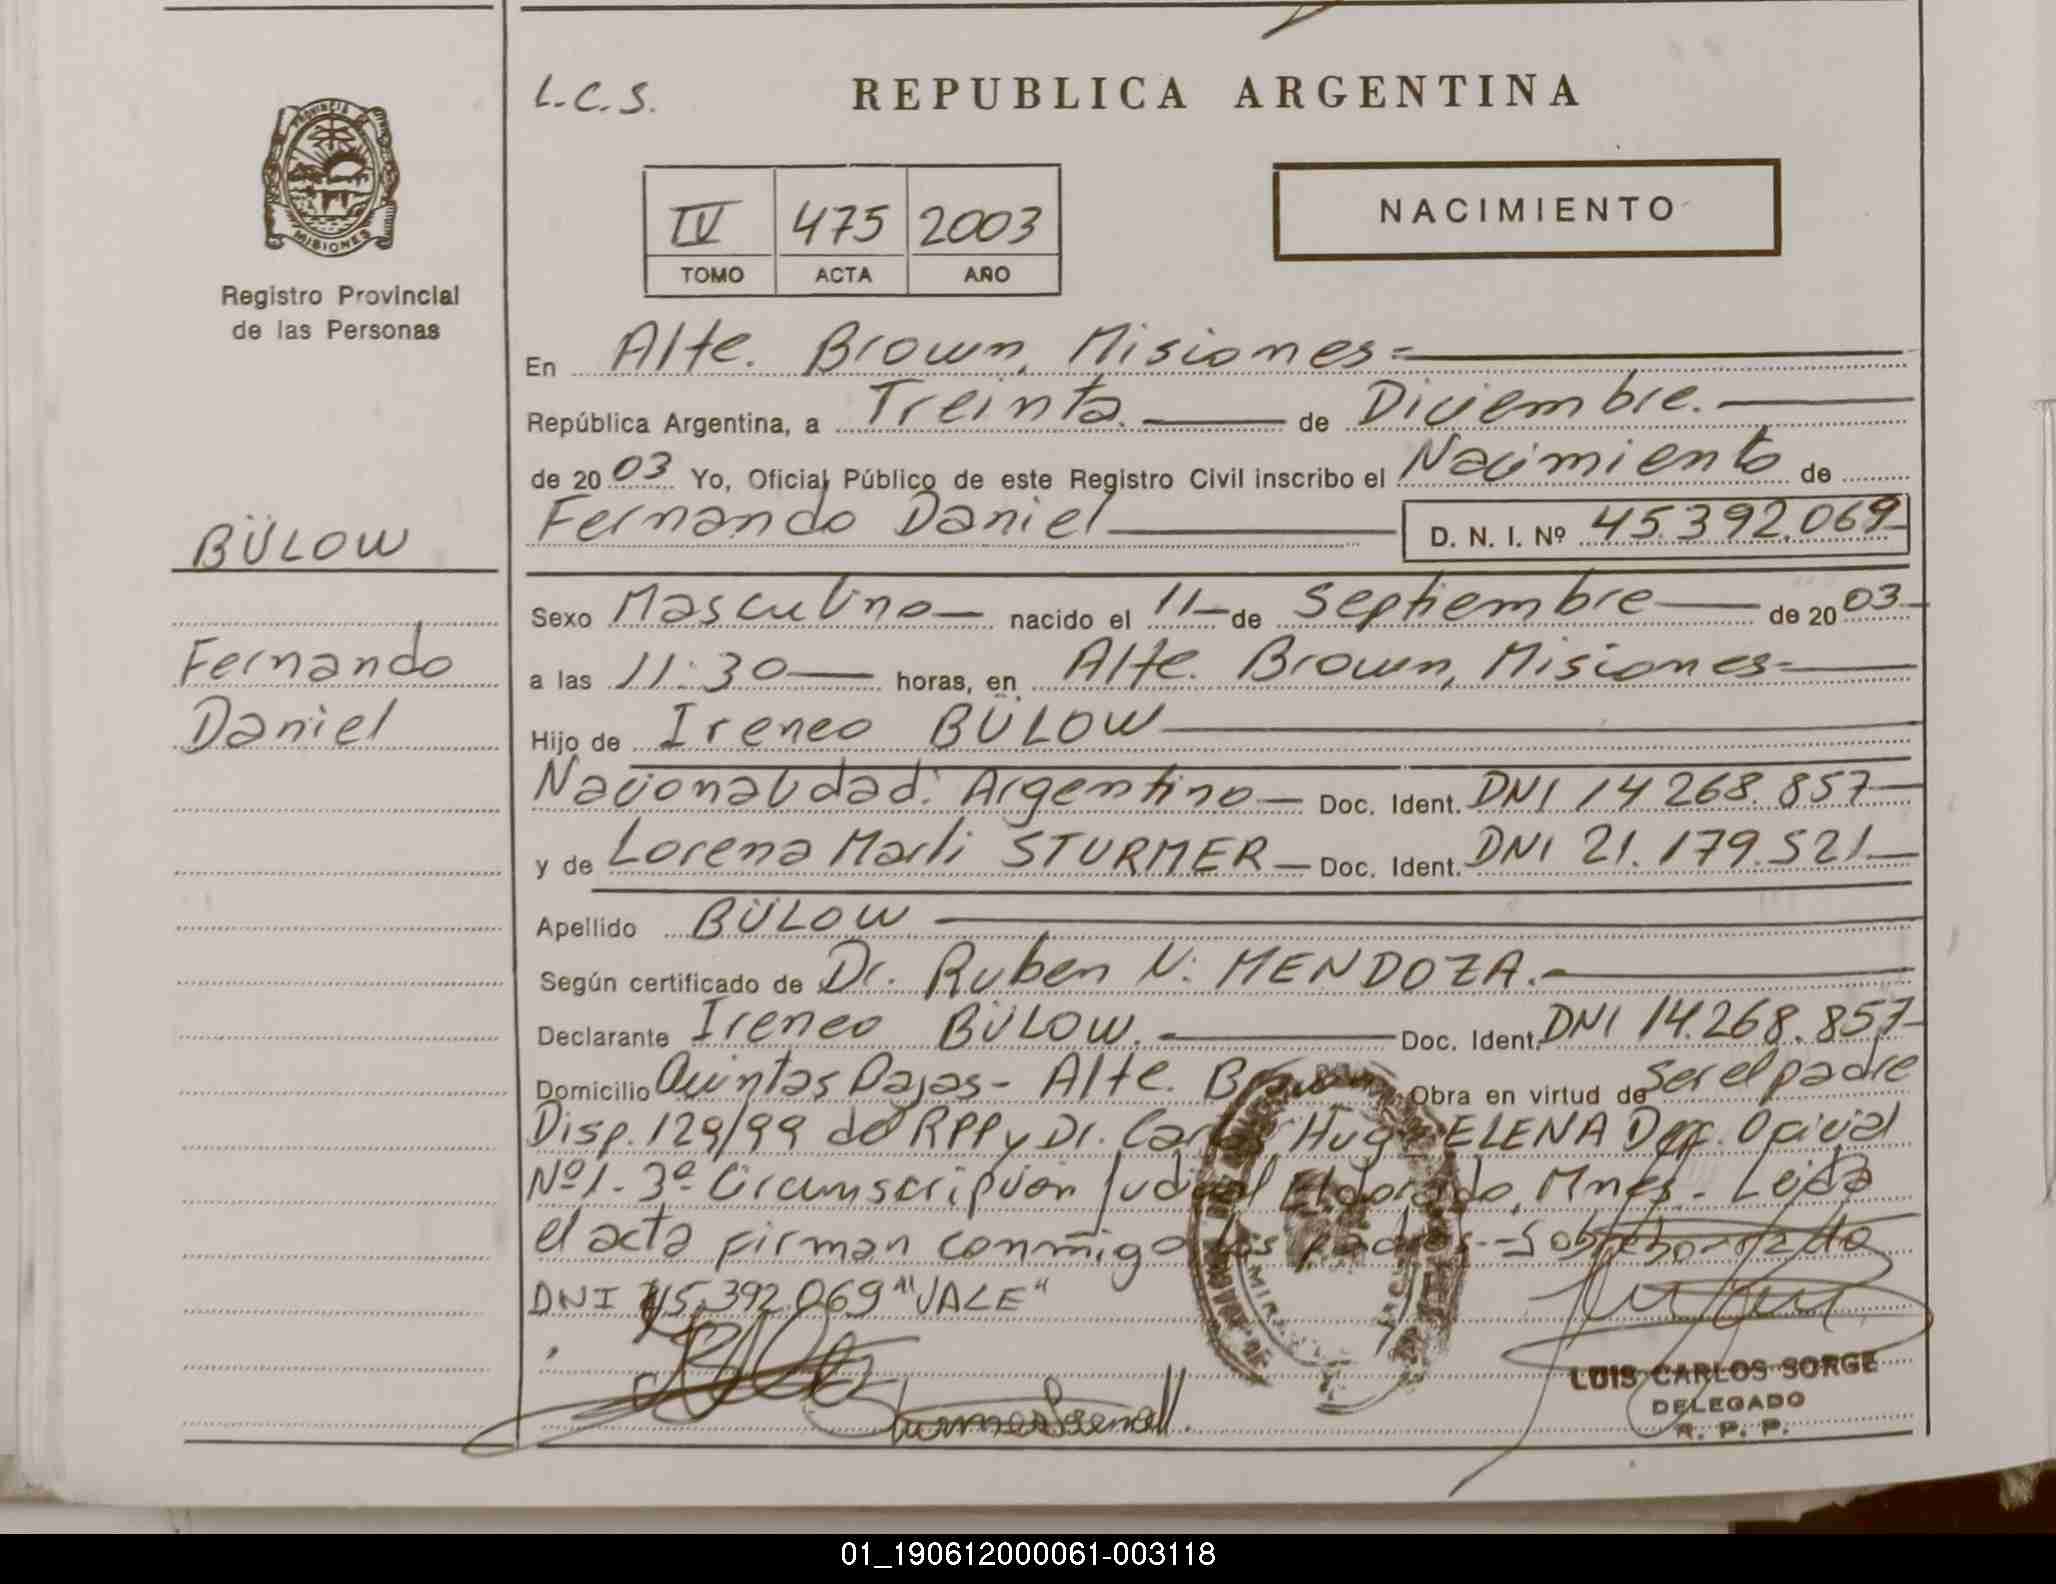 L.C.S.
REPUBLICA ARGENTINA
PROVINCIA DE
MISIONES
Registro Provincial
de las Personas
IV 475 2003
TOMO ACTA AÑO
NACIMIENTO
En Alte. Brown, Misiones=
República Argentina, a Treinta. de Diciembre.
de 2003 Yo, Oficial Público de este Registro Civil inscribo el Nacimiento de
Fernando Daniel D. N. I. Nº 45.392.069
BÜLOW
Fernando
Daniel
Sexo Masculino nacido el 11 de Septiembre de 2003
a las 11:30 horas, en Alte. Brown, Misiones-
Hijo de Ireneo BÜLOW
Nacionalidad: Argentino Doc. Ident. DNI 14.268.857
y de Lorena Marli STURMER Doc. Ident. DNI 21.179.521
Apellido BÜLOW
Según certificado de Dr. Ruben N. MENDOZA.
Declarante Ireneo BÜLOW. Doc. Ident. DNI 14.268.857
Domicilio Quintas Bajas- Alte. Brown Obra en virtud de Ser el padre
Disp. 129/99 del RPP y Dr. Carlos Hugo ELENA Def. Oficial
Nº1- 3ª Circunscripción Judicial Eldorado, Mnes. Leida
el acta firman conmigo los padres.-Sobreborrado
DNI 45.392.069 "VALE"
LUIS CARLOS SORGE
DELEGADO
R. P. P.
01_190612000061-003118